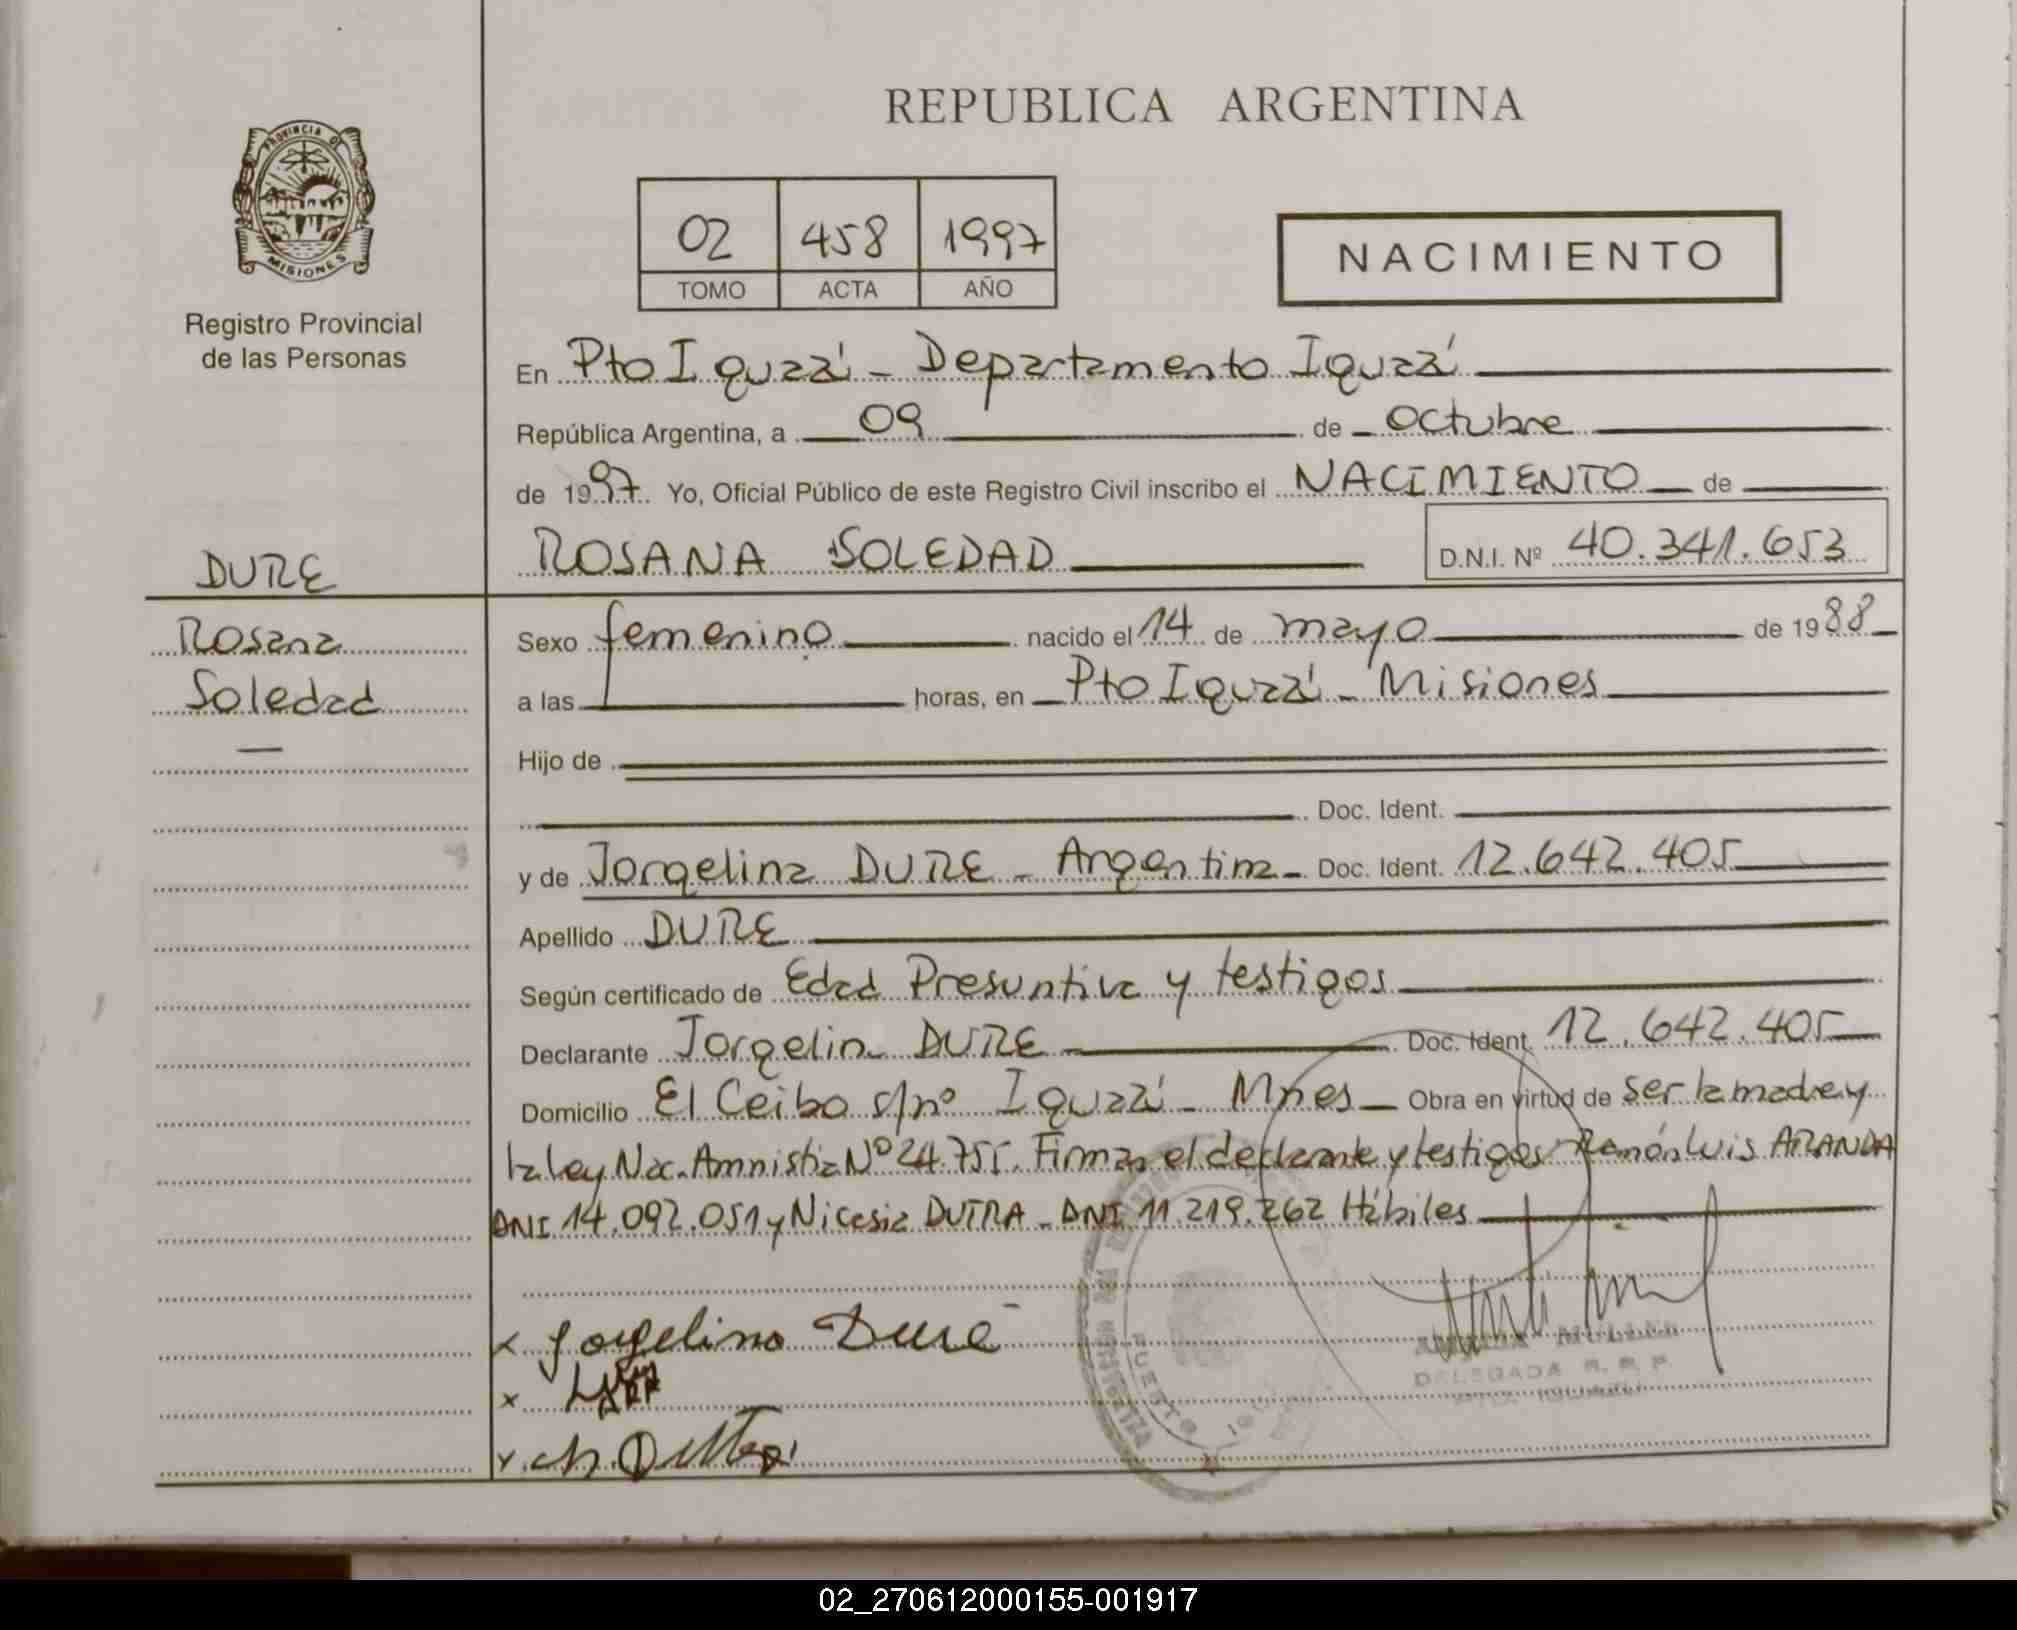 REPUBLICA ARGENTINA
PROVINCIA DE
MISIONES
Registro Provincial
de las Personas
02 458 1997
TOMO ACTA AÑO
NACIMIENTO
En Pto Iguazú - Departamento Iguazú
República Argentina, a 09 de octubre
de 1997 Yo, Oficial Público de este Registro Civil inscribo el NACIMIENTO de
DURE
ROSANA SOLEDAD D.N.I. Nº 40.341.653
Rosana
Soledad
Sexo femenino nacido el 14 de mayo de 1988
a las horas, en Pto Iguazú - Misiones
Hijo de
Doc. Ident.
y de Jorgelina DURE - Argentina - Doc. Ident. 12.642.405
Apellido DURE
Según certificado de Edad Presuntiva y testigos
Declarante Jorgelina DURE Doc. Ident. 12.642.405
Domicilio El Ceibo s/nº Iguazú - Mnes - Obra en virtud de ser la madre y
la ley Nac. Amnistia Nº 24.755. Firman el declarante y testigos Ramón Luis ARANDA
DNI 14.092.051 y Nicesia DUTRA - DNI 11.219.262 Hábiles
x Jorgelina Dure
x
MULLER
DELEGADA R. P. P.
PTO. IGUAZU
PUERTO
02_270612000155-001917